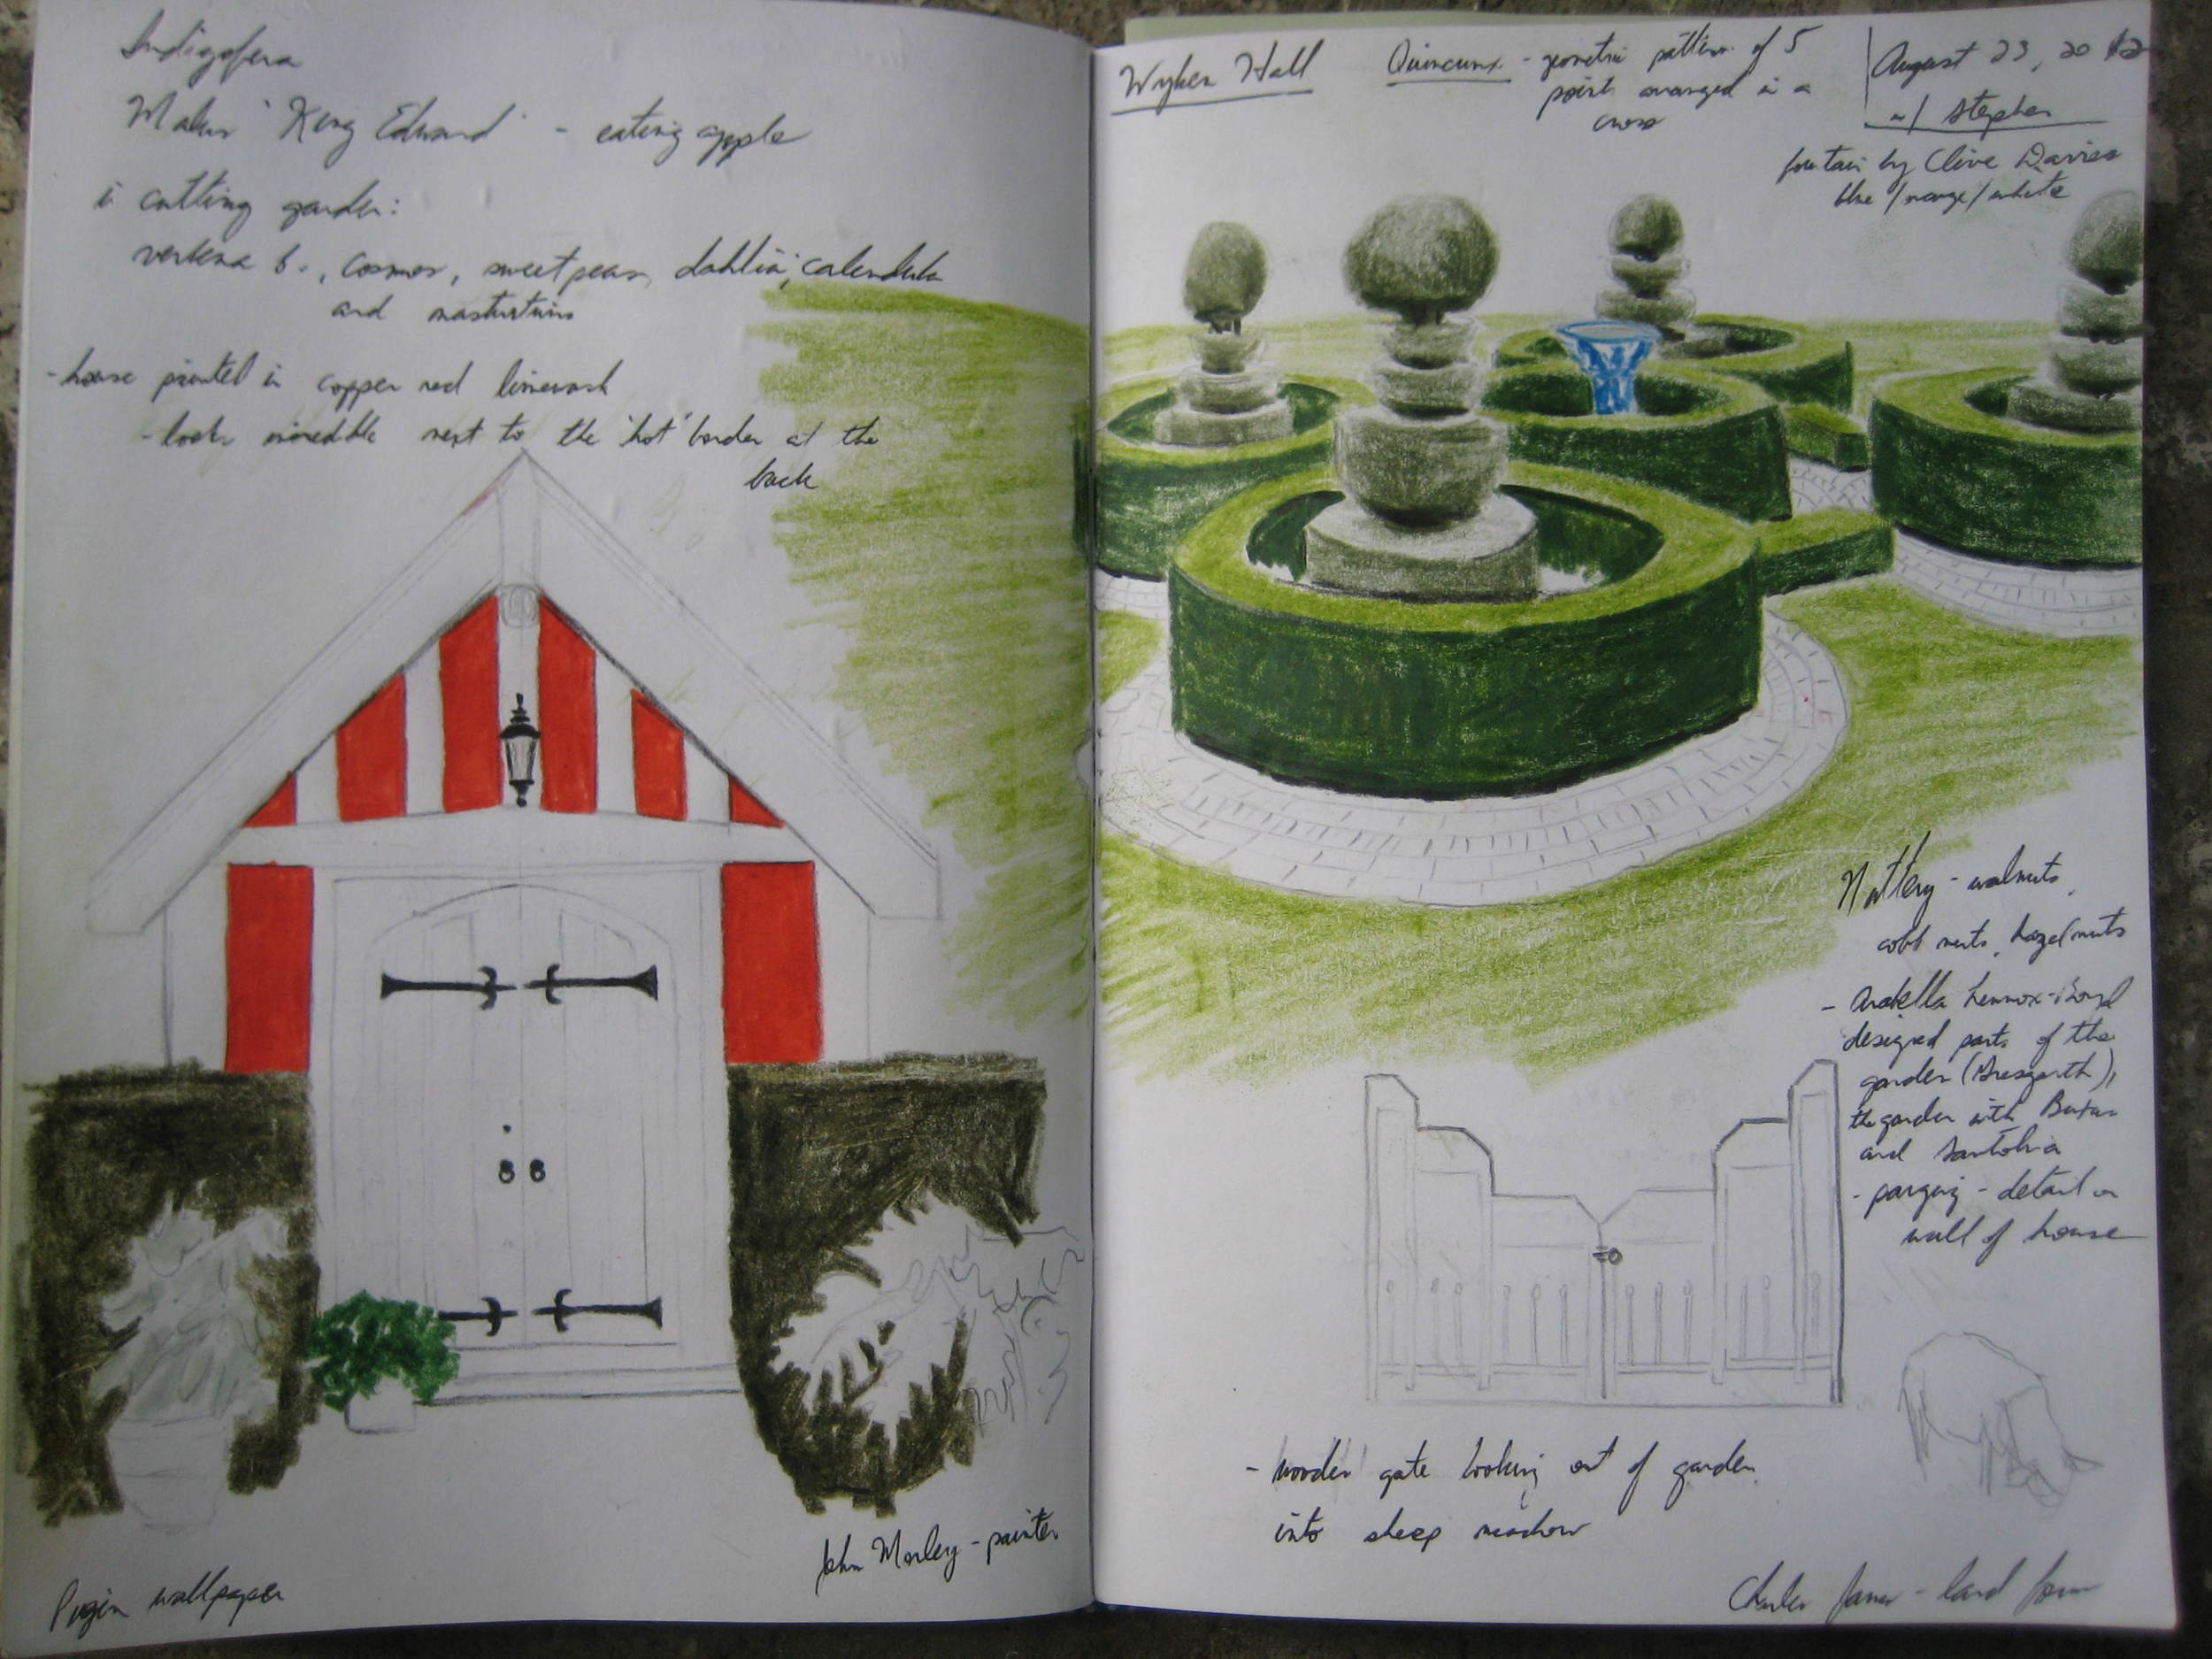 Indigofera
Malus 'King Edward' - eating apple
in cutting garden:
verbena b., cosmos, sweet peas, dahlia, calendula
and nasturtium
- house painted in copper red limewash
- looks incredible next to the 'hot' border at the
back
John Morley - painter
Pugin wallpaper
Wyken Hall
Quincunx - geometric pattern of 5
points arranged in a
cross
August 23, 2012
w/ Stephen
fountain by Clive Davies
blue/orange/white
Nuttery - walnuts,
cobb nuts, hazelnuts
- Arabella Lennox-Boyd
designed parts of the
garden (Gresgarth),
the garden with Buxus
and Santolina
- parging - detail on
wall of house
- wooden gate looking out of garden
into sheep meadow
Charles - land form